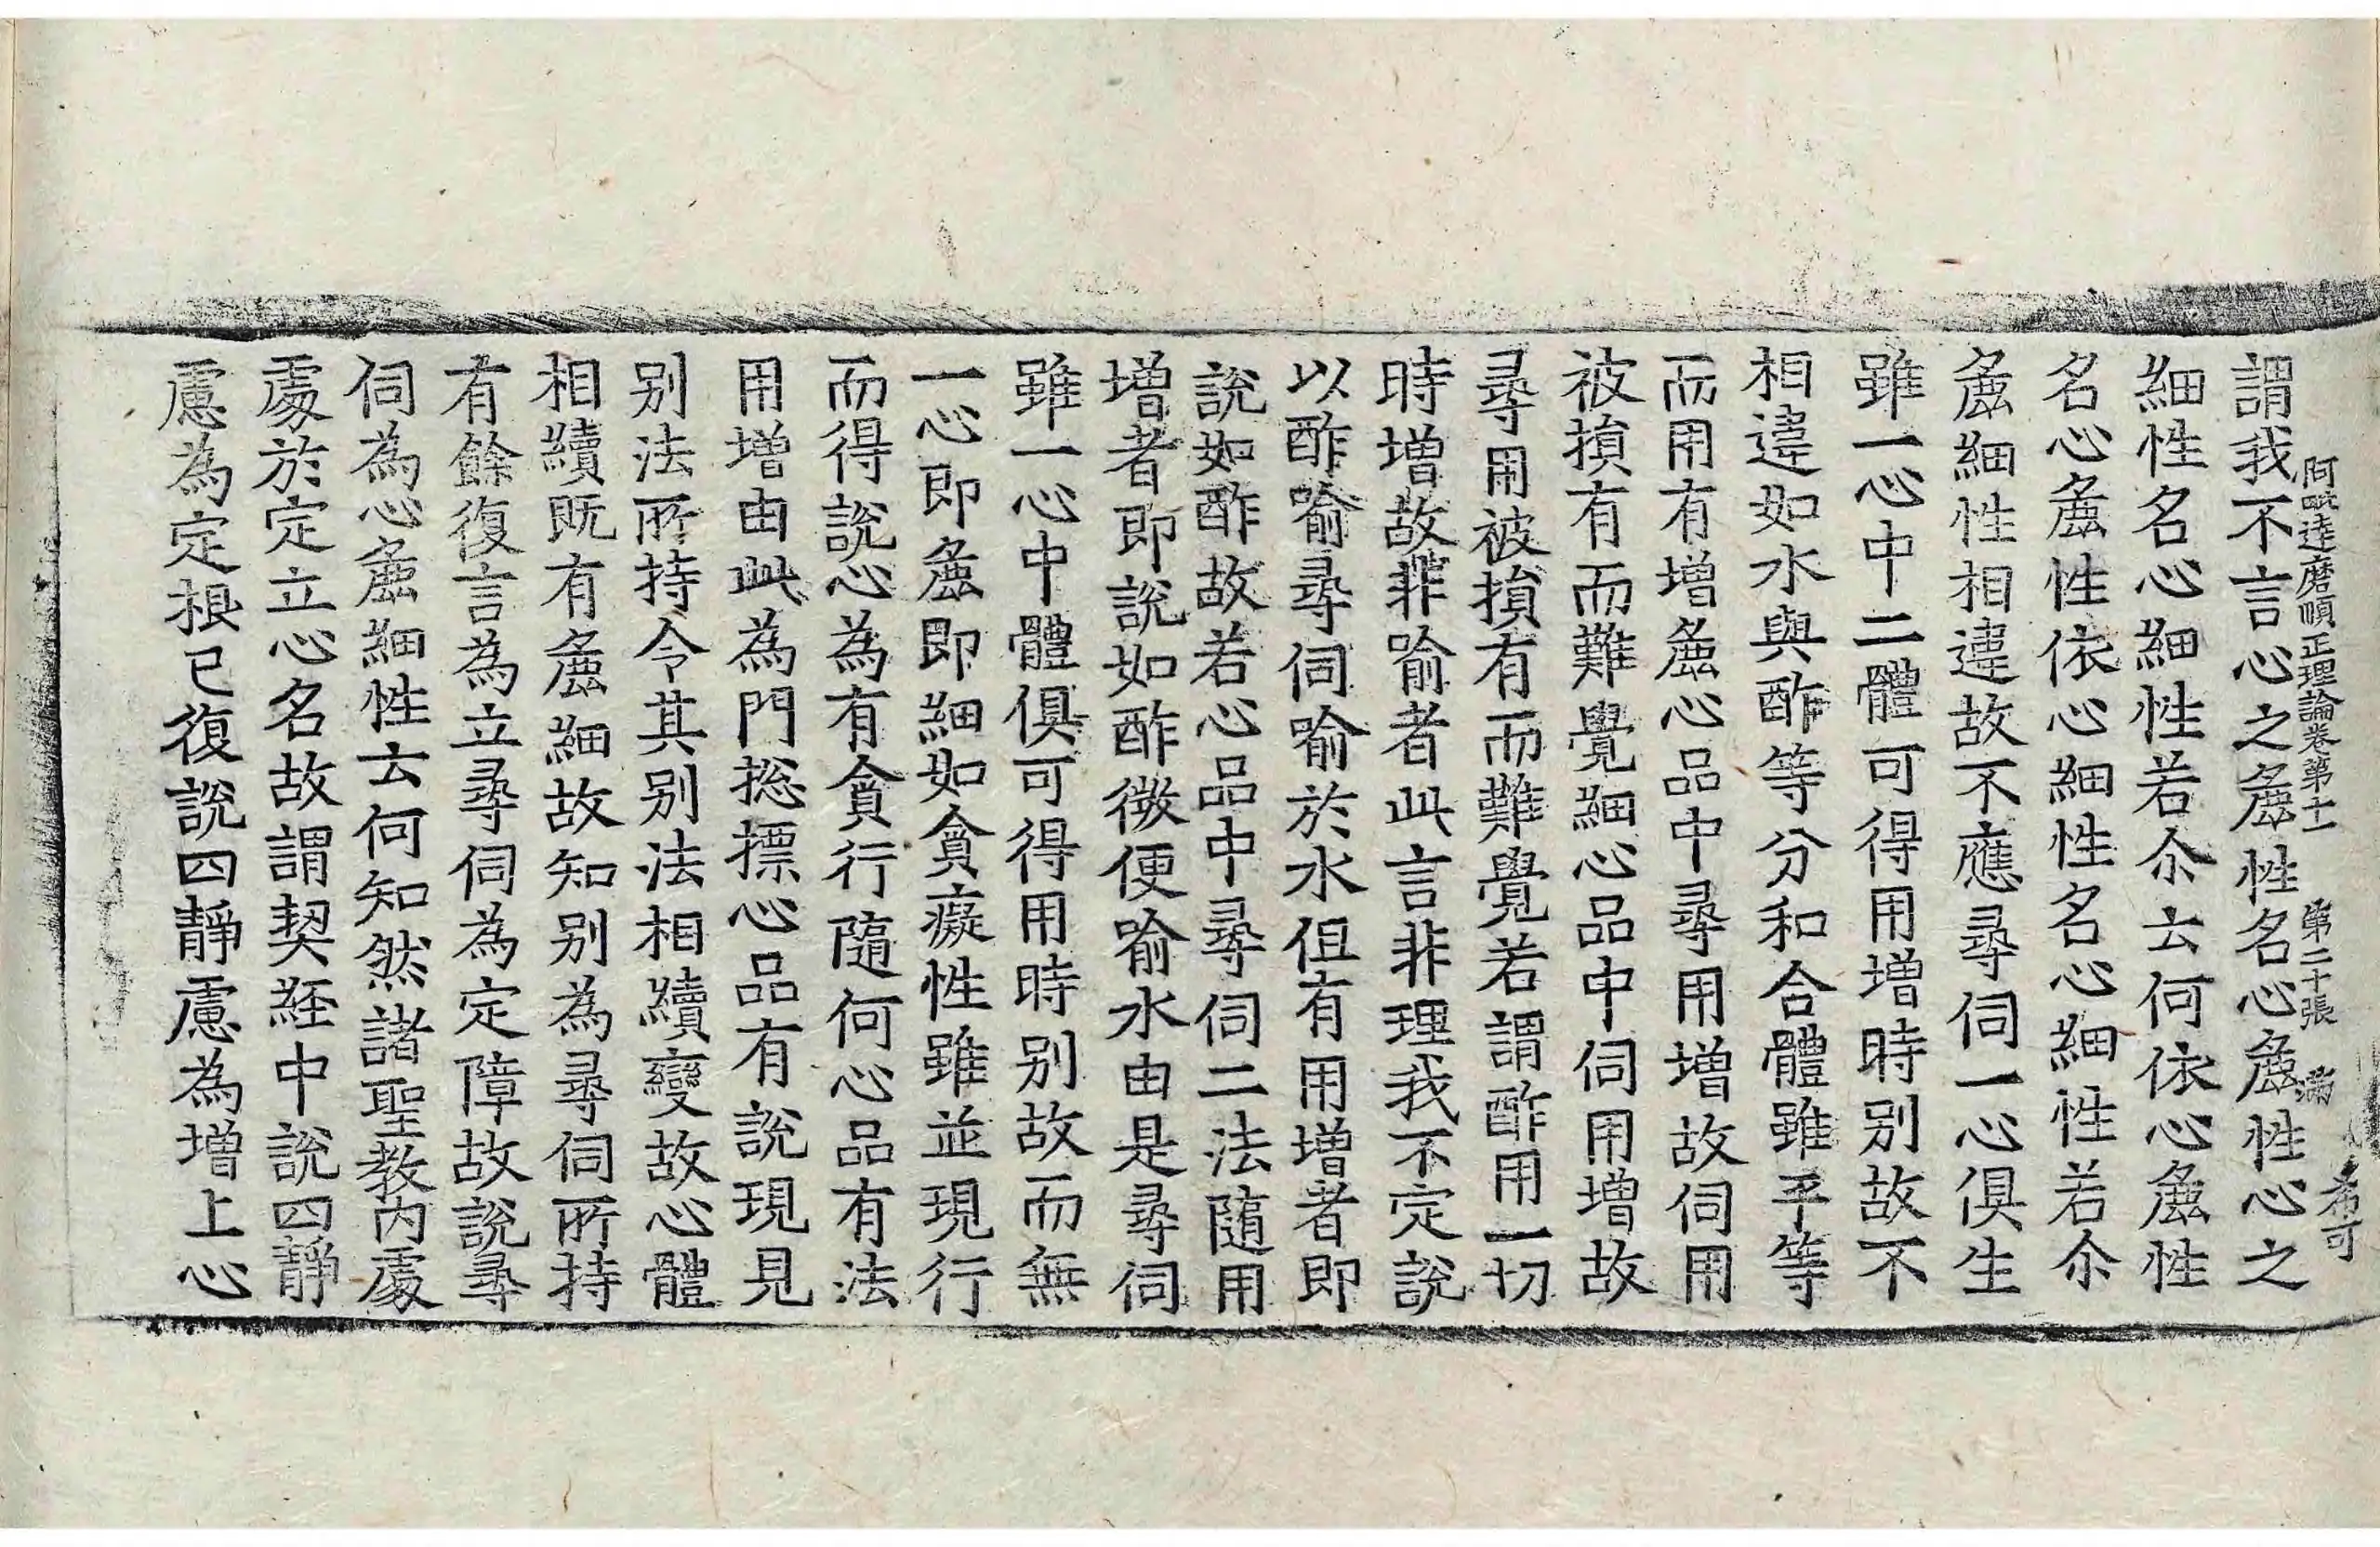 阿毗達磨順正理論卷第十一　第二十張　滿
希可
謂我不言心之麁性名心麁性心之
細性名心細性若尒云何依心麁性
名心麁性依心細性名心細性若尒
麁細性相違故不應尋伺一心俱生
雖一心中二體可得用增時別故不
相違如水與酢等分和合體雖平等
而用有增麁心品中尋用增故伺用
被損有而難覺細心品中伺用增故
尋用被損有而難覺若謂酢用一切
時增故非喻者此言非理我不定說
以酢喻尋伺喻於水但有用增者即
說如酢故若心品中尋伺二法隨用
增者即說如酢微便喻水由是尋伺
雖一心中體俱可得用時別故而無
一心即麁即細如貪癡性雖並現行
而得說心為有貪行隨何心品有法
用增由此為門揔摽心品有說現見
別法所持令其別法相續變故心體
相續既有麁細故知別為尋伺所持
有餘復言為立尋伺為定障故說尋
伺為心麁細性云何知然諸聖教內處
處於定立心名故謂契経中說四靜
慮為定根已復說四靜慮為增上心